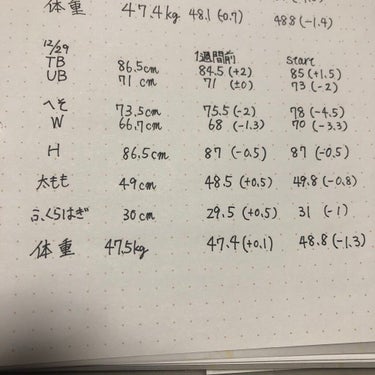 体重 47.4kg 48.1 (-0.7) 48.8 (-1.4)
12/29 1週間前 Start
TB 86.5cm 84.5 (+2) 85 (+1.5)
UB 71 cm 71 (±0) 73 (-2)
へそ 73.5cm 75.5 (-2) 78 (-4.5)
W 66.7cm 68 (-1.3) 70 (-3.3)
H 86.5cm 87 (-0.5) 87 (-0.5)
太もも 49cm 48.5 (+0.5) 49.8 (-0.8)
ふくらはぎ 30cm 29.5 (+0.5) 31 (-1)
体重 47.5kg 47.4 (+0.1) 48.8 (-1.3)